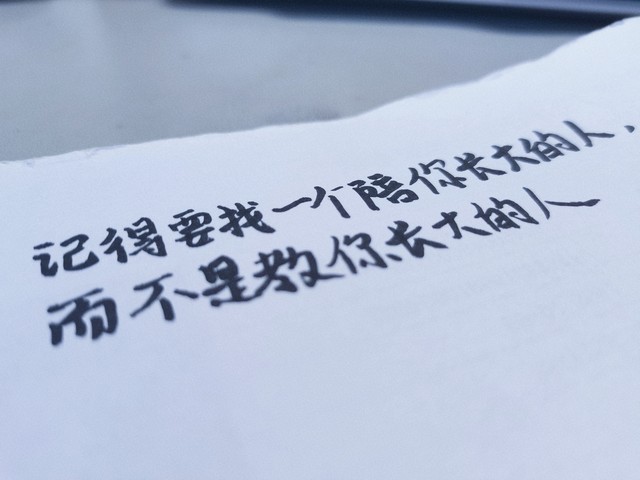 记得要找一个陪你长大的人，
而不是教你长大的人